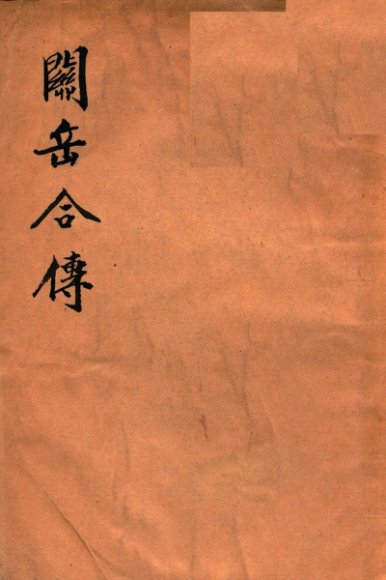 關岳合傳